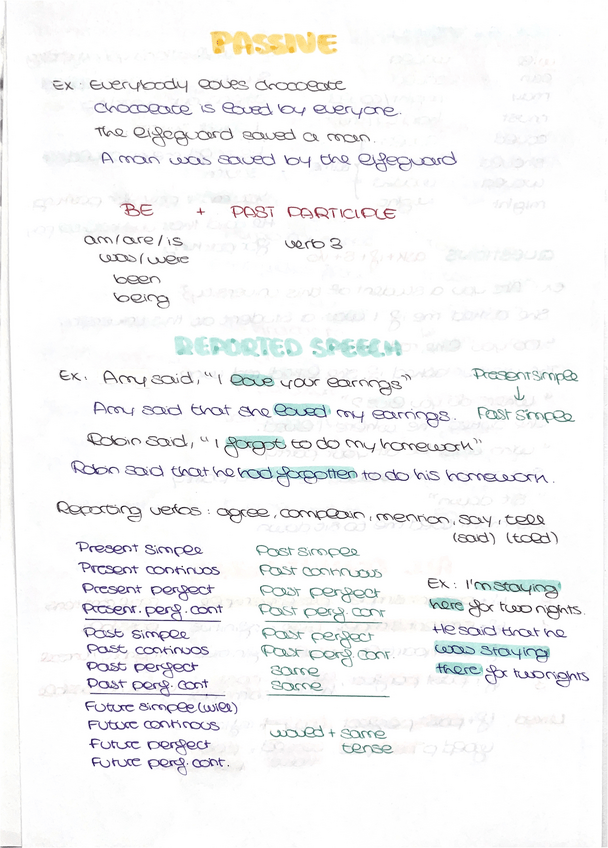 PASSIVE
Ex: Everybody loves chocolate
Chocolate is loved by everyone.
The lifeguard saved a man.
A man was saved by the lifeguard
BE + PAST PARTICIPLE
am/are/is verb 3
was/were
been
being
REPORTED SPEECH
Ex. Amy said, "I love your earrings" Present simple
↓
Amy said that she loved my earrings. Past simple
Robin said, "I forgot to do my homework"
Robin said that he had forgotten to do his homework.
Reporting verbs: agree, complain, mention, say, tell
(said) (told)
Present simple Past simple
Present continuos Past continuous
Present perfect Past perfect
Present. perf. cont Past perf. cont
Past simple Past perfect
Past continuos Past perf cont.
Past perfect same
Past perf. cont same
Future simple (will)
Future continous would + same
Future perfect tense
Future perf. cont.
Ex: I'm staying
here for two nights.
He said that he
was staying
there for two nights